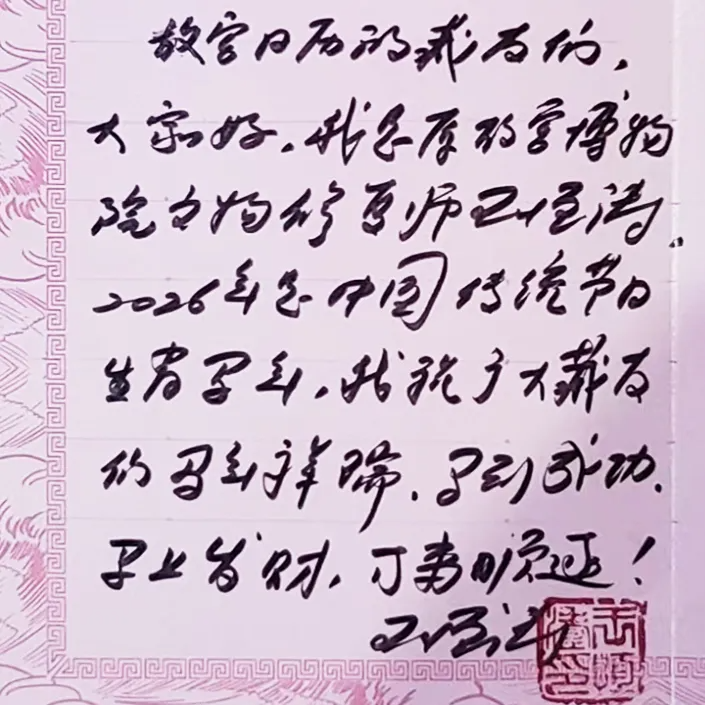 故宫日历的藏友们,
大家好.我是原故宫博物
院文物修复师王
2026年是中国传统节日
生肖马年,我祝广大藏友
们马年祥瑞.马到成功.
马上发财,万事顺达!
王